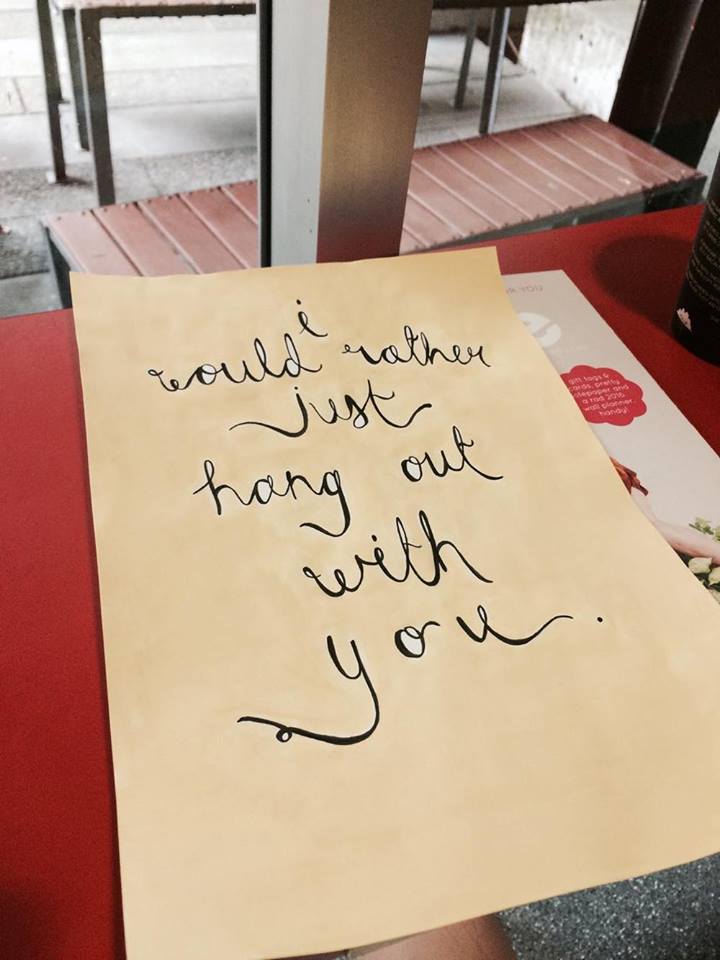 i
would rather
just
hang out
with
you.
OR YOU
gift tags &
cards, pretty
notepaper and
a rad 2016
wall planner.
handy!